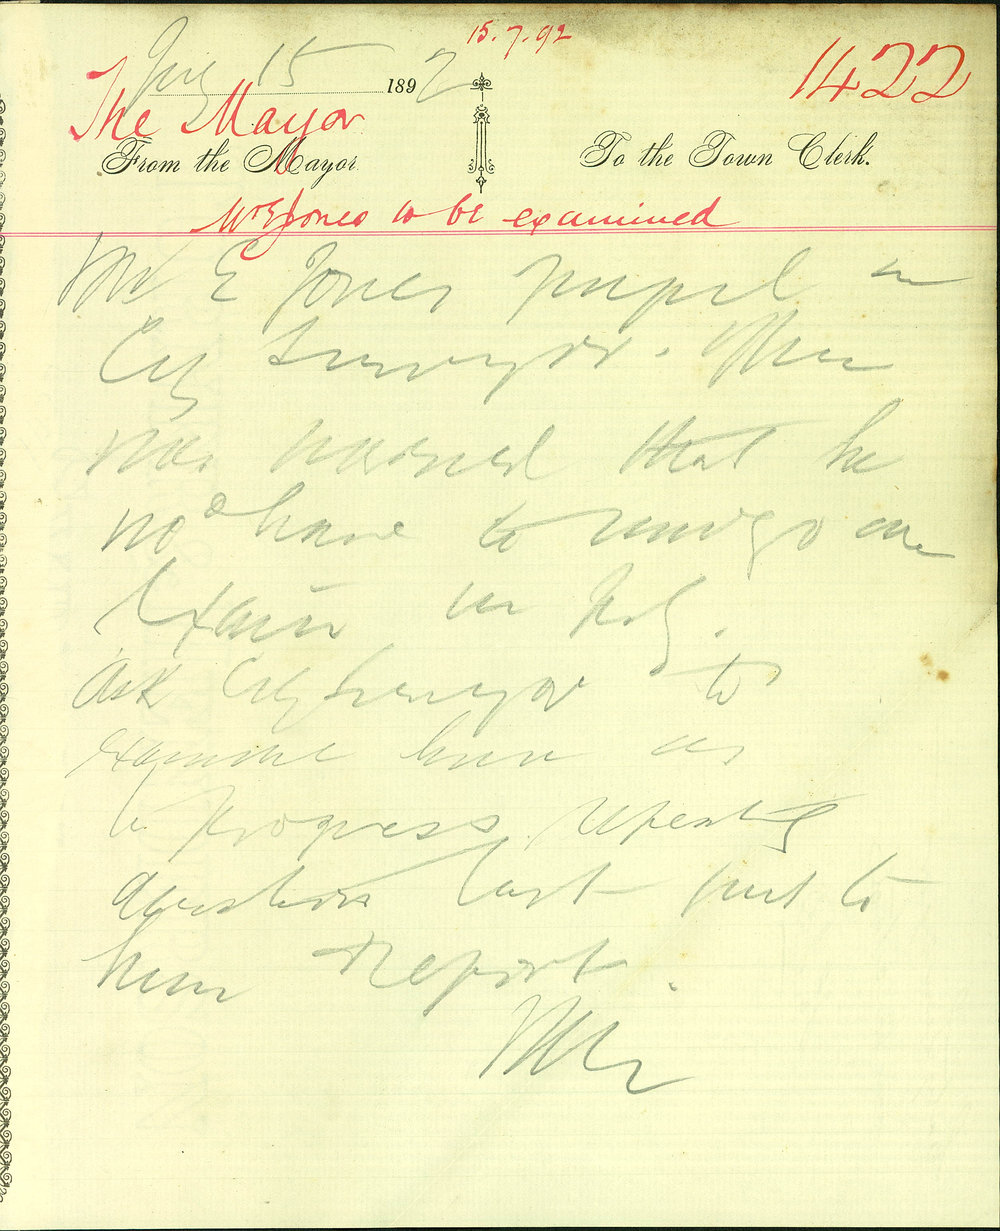 15.7.92
July 15 1892
1422
The Mayor
From the Mayor.
To the Town Clerk.
Mr E Jones to be examined
Mr E Jones pupil in
City Surveyors.
was warned that he
wod have to undergo an
Exam in July.
Ask City Surveyor to
examine him as
to Progress repeating
questions last put to
him Report.